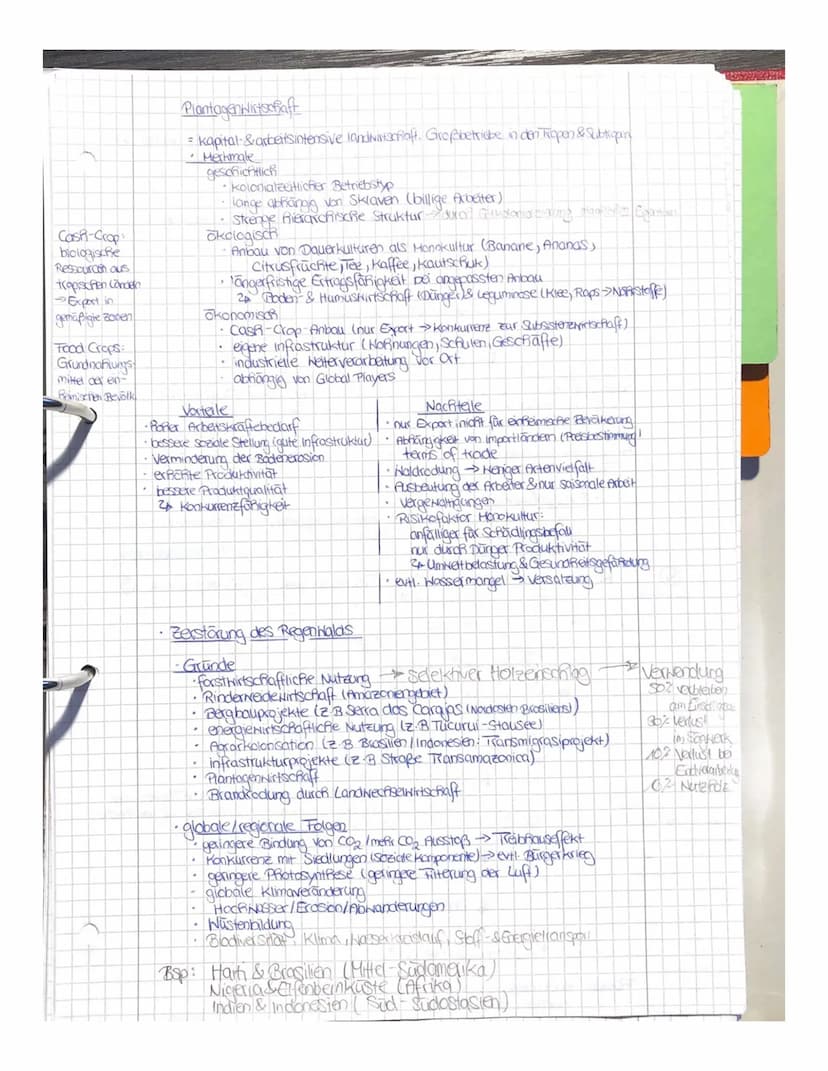 Plantagenwirtschaft
= kapital- & arbeitsintensive landwirtschaft. Großbetriebe in den Tropen & Subtropen
· Merkmale
geschichtlich
· kolonialzeitlicher Betriebstyp
· lange abhängig von Sklaven (billige Arbeiter)
· strenge hierarchische Struktur →
ökologisch
· Anbau von Dauerkulturen als Monokultur (Banane, Ananas,
Citrusfrüchte, Tee, Kaffee, Kautschuk)
· längerfristige Ertragsfähigkeit bei angepassten Anbau
↳ Boden- & Humuswirtschaft (Dünger) & Leguminose (Klee, Raps → Nährstoffe)
ökonomisch
· Cash-Crop-Anbau (nur Export → Konkurrenz zur Subsistenzwirtschaft)
· eigene Infrastruktur (Wohnungen, Schulen, Geschäfte)
· industrielle Weiterverarbeitung vor Ort
· abhängig von Global Players
Cash-Crop:
biologische
Ressourcen aus
tropischen Ländern
→ Export in
gemäßigte Zonen
Food Crops:
Grundnahrungs-
mittel der ein-
heimischen Bevölk.
Vorteile
· hoher Arbeitskräftebedarf
· bessere soziale Stellung (gute Infrastruktur)
· Verminderung der Bodenerosion
· erhöhte Produktivität
· bessere Produktqualität
↳ Konkurrenzfähigkeit
Nachteile
· nur Export (nicht für einheimische Bevölkerung
· Abhängigkeit von Importländern (Preisbestimmung)
terms of trade
· Waldrodung → weniger Artenvielfalt
· Ausbeutung der Arbeiter & nur saisonale Arbeit
· Vergewaltigungen
· Risikofaktor Monokultur:
anfälliger für Schädlingsbefall
nur durch Dünger Produktivität
↳ Umweltbelastung & Gesundheitsgefährdung
· evtl. Wassermangel → Versalzung
· Zerstörung des Regenwalds
· Gründe
· forstwirtschaftliche Nutzung → Selektiver Holzeinschlag → Verwendung
· Rinderweidewirtschaft (Amazonengebiet)
· Bergbauprojekte (z.B Serra dos Carajas (Nordosten Brasiliens))
· energiewirtschaftliche Nutzung (z.B Tucurui-Stausee)
· Agrarkolonisation (z.B Brasilien/Indonesien: Transmigrasiprojekt)
· Infrastrukturprojekte (z.B Straße Transamazonica)
· Plantagenwirtschaft
· Brandrodung durch Landwechselwirtschaft
50% verbleiben
am
Verlust
im Sägewerk
10% Verlust bei
Endverarbeitung
Nutzholz
· globale/regionale Folgen
· geringere Bindung von CO2 / mehr CO2 Ausstoß → Treibhauseffekt
· Konkurrenz mit Siedlungen (soziale Komponente) → evtl. Bürgerkrieg
· geringere Photosynthese (geringere Filterung der Luft)
- globale Klimaveränderung
· Hochwasser/Erosion/Abwanderungen
· Wüstenbildung
· Biodiversität, Klima, Wasserkreislauf, Stoff- & Energietransport
Bsp: Haiti & Brasilien (Mittel-Südamerika)
Nigeria & Elfenbeinküste (Afrika)
Indien & Indonesien (Süd-Südostasien)